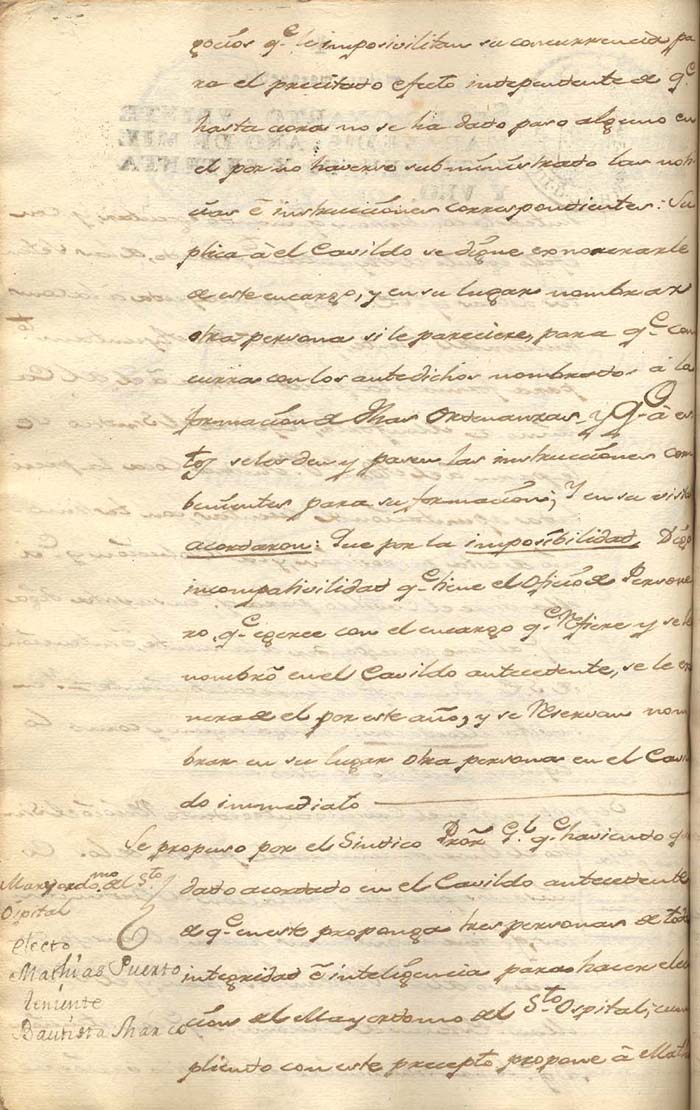 gocios q.e le imposivilitan su concurrencia pa
ra el precitado efecto independente de q.e
hasta aora no se ha dado paso alguno en
el por no haverse subministrado las noti
cias è instrucciones correspondientes: Su
plica à el Cavildo se digne exonerarle
de este encargo, y en su lugar nombrar
otra persona si le pareciere, para q.e con
curra con los antedichos nombrados à la
formacion de dhas Ordenanzas y q.e à es
tos se les den y pasen las instrucciones com
benientes para su formacion; Y en su vista
acordaron: Que por la imposibilidad, Digo
incompativilidad q.e tiene el Oficio de Persone
ro, q.e egerce con el encargo q.e Refiere y se le
nombrò en el Cavildo antecedente, se le exo
nera de el por este año, y se Reservan nom
brar en su lugar otra persona en el Cavil
do immediato
Se propuso por el Sindico Pror G.l q.e haviendo que
dado acordado en el Cavildo antecedente
de q.e en este proponga tres personas de toda
integridad è inteligencia para hacer elec
cion de Mayordomo del S.to Ospital; cum
pliento con este precepto propone à Math
Mayordomo del S.to
Ospital
electo
Mathias Puerto
teniente
Bautista Marco